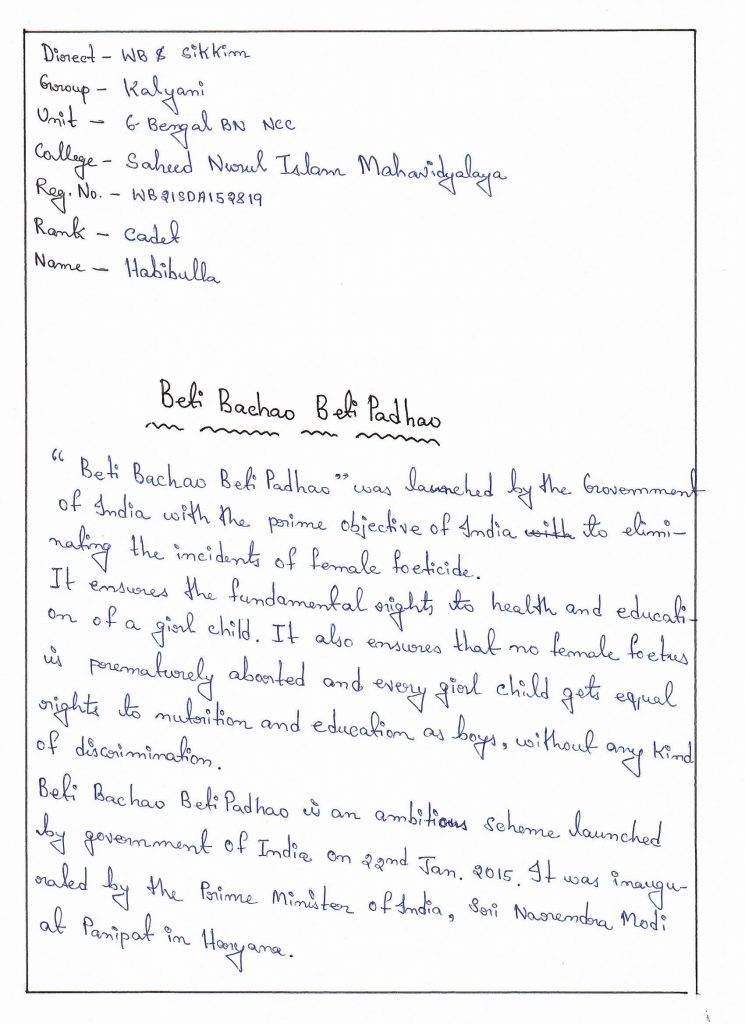 Direct - WB & Sikkim
Group - Kalyani
Unit - 6 Bengal BN NCC
College - Saheed Nurul Islam Mahavidyalaya
Reg. No. - WB21SDA152819
Rank - Cadet
Name - Habibulla
Beti Bachao Beti Padhao
"Beti Bachao Beti Padhao" was launched by the Government
of India with the prime objective of India with to elimi-
nating the incidents of female foeticide.
It ensures the fundamental rights to health and educati-
on of a girl child. It also ensures that no female foetus
is prematurely aborted and every girl child gets equal
rights to nutrition and education as boys, without any kind
of discrimination.
Beti Bachao Beti Padhao is an ambitious scheme launched
by government of India on 22nd Jan. 2015. It was inaugu-
rated by the Prime Minister of India, Sri Narendra Modi
at Panipat in Haryana.